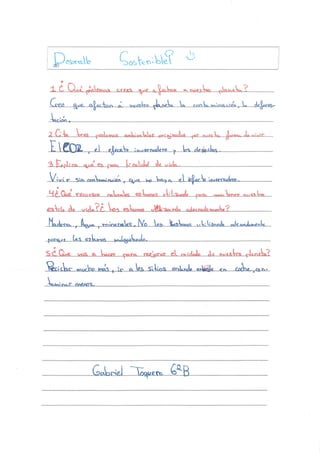 Desarrollo Sostenible?
1 ¿Qué problemas crees que afectan a nuestro planeta?
Creo que afectan a nuestro planeta la contaminación, la defores-
tación.
2 Cita tres problemas ambientales originados por nuestra forma de vivir
El CO2, el efecto invernadero y los desechos.
3 Explica qué es para ti calidad de vida.
Vivir sin contaminación, que no haya el efecto invernadero.
4 ¿Qué recursos naturales estamos utilizando para mantener nuestro
estilo de vida? ¿Los estamos utilizando adecuadamente?
Madera, Agua, minerales. No los estamos utilizando adecuadamente
porque los estamos malgastando.
5 ¿Que vas a hacer para mejorar el cuidado de nuestro planeta?
Reciclar mucho más, ir a los sitios andando en coche, con-
taminar menos.
Gabriel Toquero 6ºB